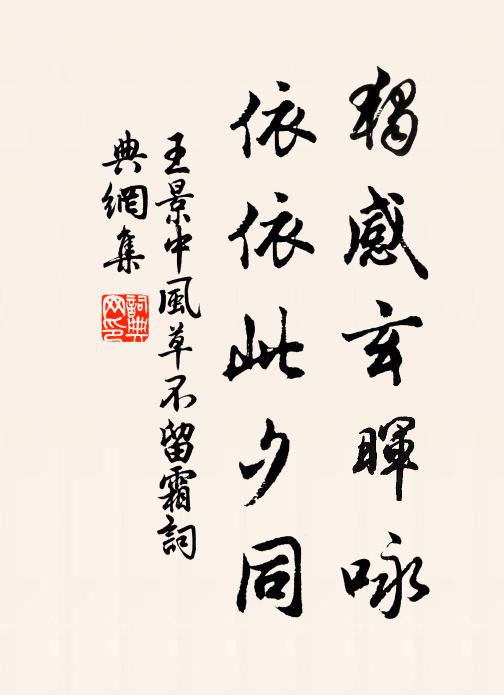 獨感玄暉咏
依依此夕同
王景中風草不留霜詞
典網集
詞典網印